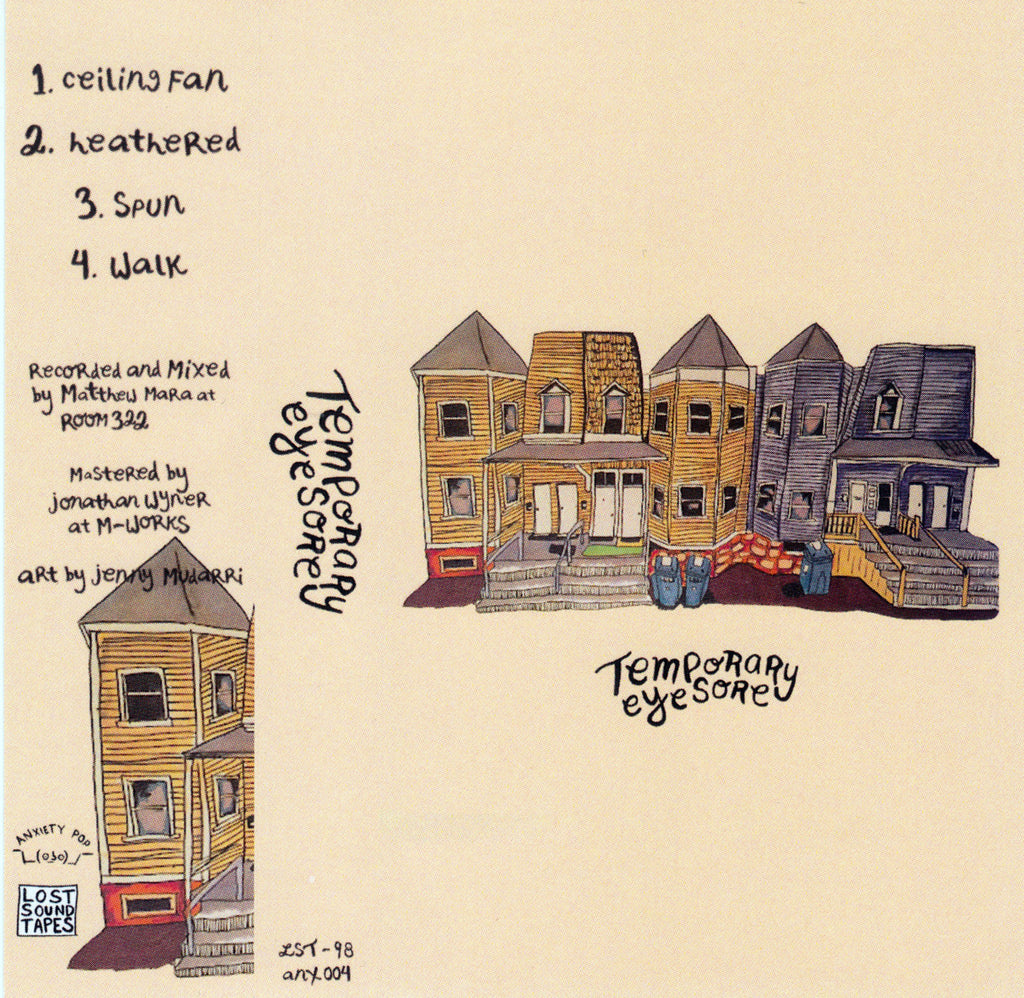 1. Ceiling Fan
2. heathered
3. Spun
4. Walk
Recorded and Mixed
by Matthew Mara at
Room 322
Mastered by
Jonathan Wyner
at M-Works
Art by Jenny Mudarri
ANXIETY POP
¯\_( o3o)_/¯
LOST
SOUND
TAPES
Temporary
eyesore
LST-98
anx004
Temporary
eyesore